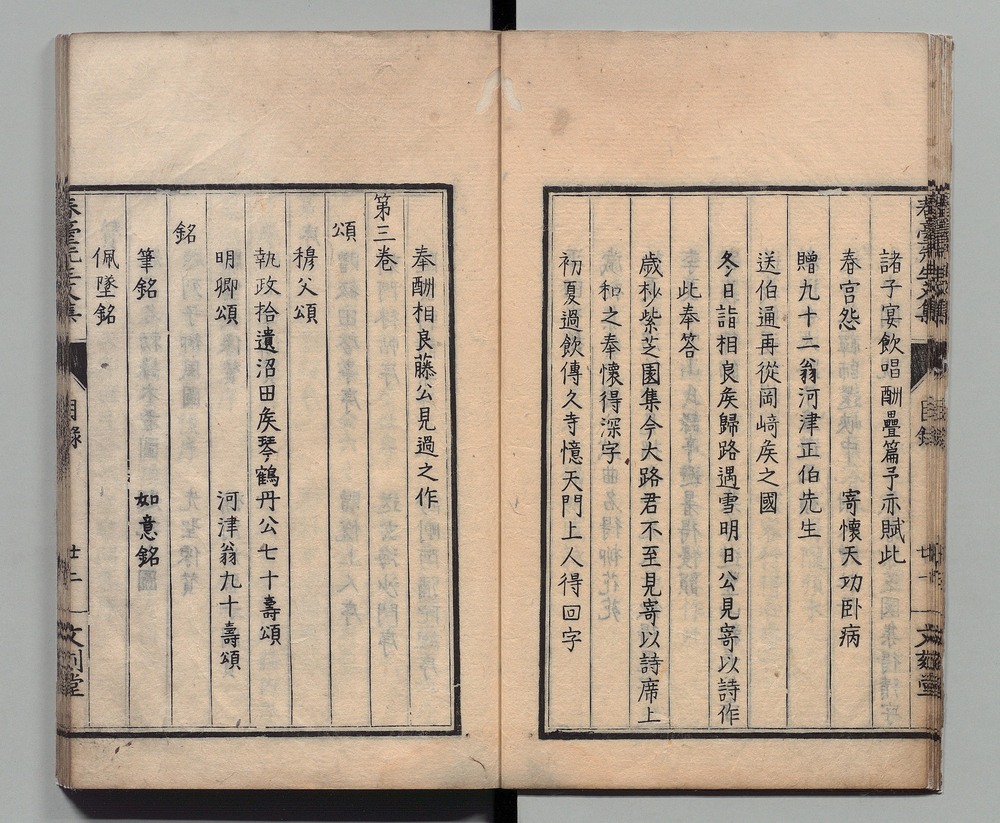 諸子宴飲唱酬疊篇予亦賦此
春宮怨　寄懷天功卧病
贈九十二翁河津正伯先生
送伯通再從岡﨑矦之國
冬日詣相良矦歸路遇雪明日公見寄以詩作
此奉答
歲杪紫芝園集今大路君不至見寄以詩席上
和之奉懷得深字
初夏過飲傳久寺憶天門上人得回字
目錄
廿一
奉酬相良藤公見過之作
第三卷
頌
穆父頌
執政拾遺沼田矦琴鶴丹公七十壽頌
明卿頌　河津翁九十壽頌
銘
筆銘　如意銘
佩墜銘
春臺先生文集
目錄
廿二
文刻堂